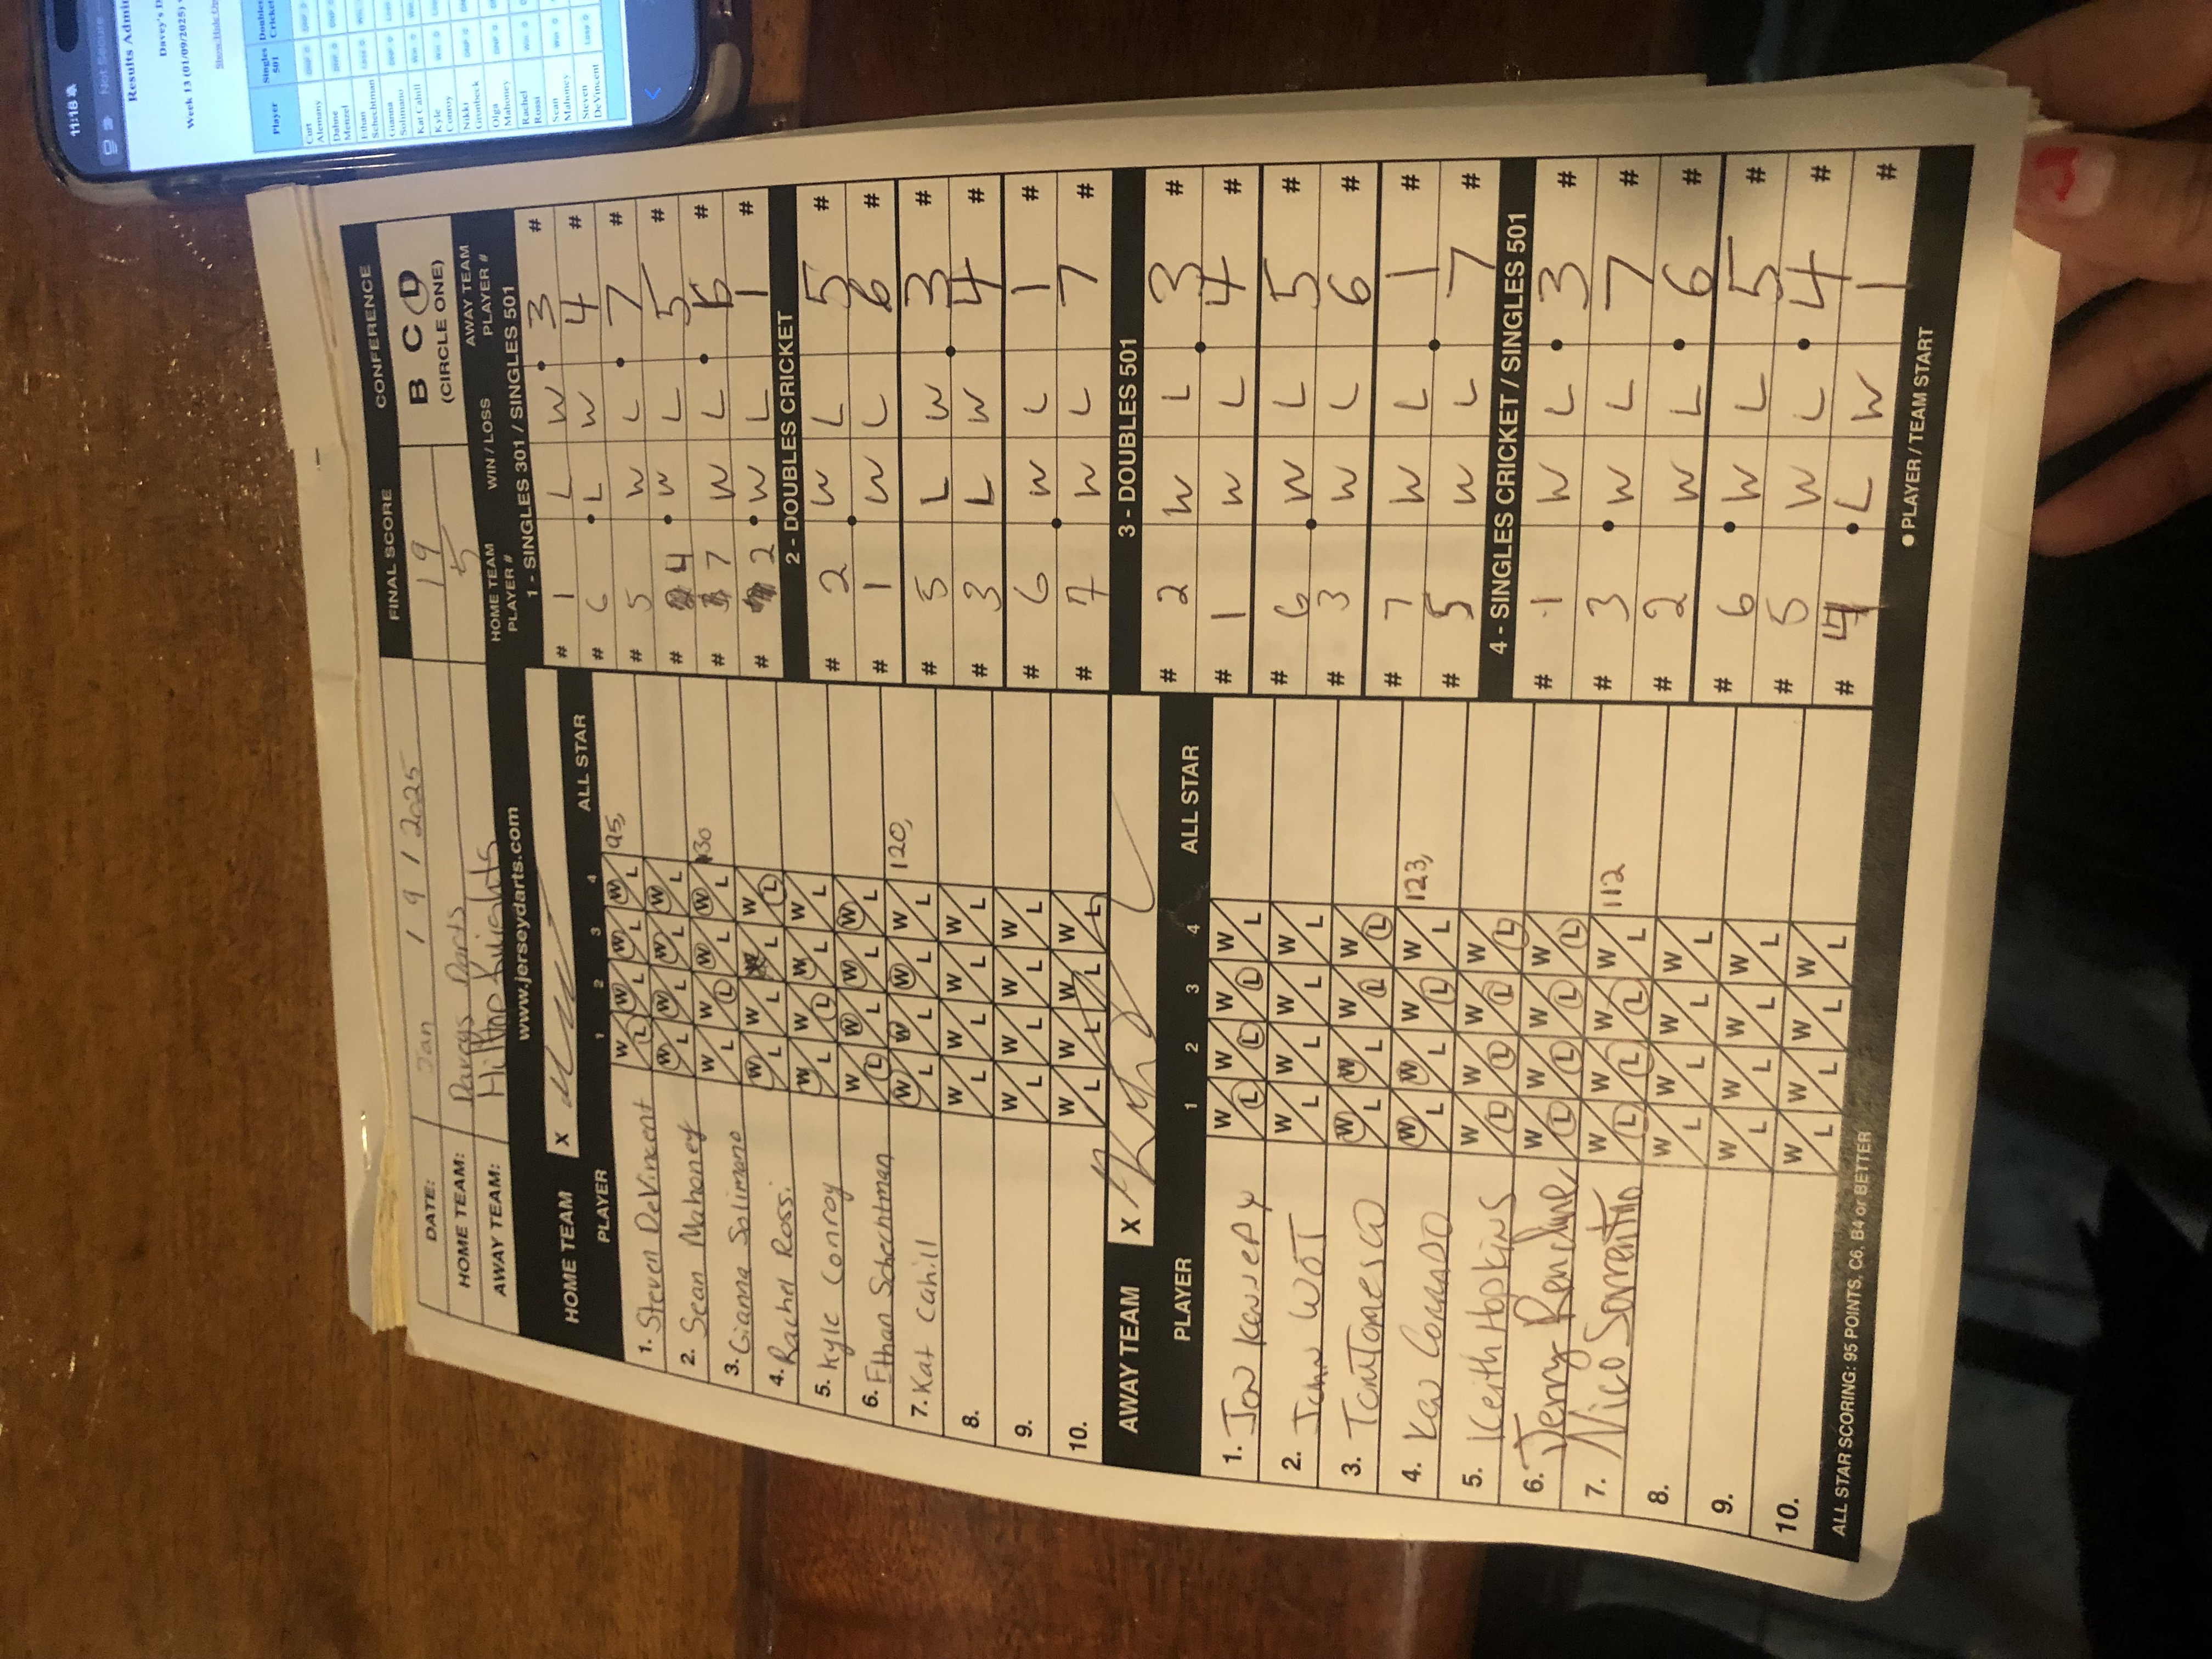 11:18
Not Secure
Results Admin
Davey's D
Week 13 (01/09/2025)
Player Singles 501 Doubles Cricket
Curt Alemany
Dafne Menzel
Ethan Schechtman
Gianna Solimano
Kat Cahill
Kyle Conroy
Nikki Gronbeck
Olga Mahoney
Rachel Rossi
Sean Mahoney
Steven DeVincent
DATE: Jan / 9 / 2025
HOME TEAM: Daveys Darts
AWAY TEAM:
FINAL SCORE
19
5
CONFERENCE
B C D
(CIRCLE ONE)
www.jerseydarts.com
HOME TEAM X
PLAYER 1 2 3 4 ALL STAR
1. Steven DeVincent W L W L W L W L 95,
2. Sean Mahoney W L W L W L W L
3. Gianna Solimano W L W L W L W L 130
4. Rachel Rossi W L W L W L W L
5. Kyle Conroy W L W L W L W L
6. Ethan Schechtman W L W L W L W L
7. Kat Cahill W L W L W L W L 120,
8. W L W L W L W L
9. W L W L W L W L
10. W L W L W L W L
AWAY TEAM X
PLAYER 1 2 3 4 ALL STAR
1. Jon W L W L W L W L
2. John WOTT W L W L W L W L
3. Tom Tomesco W L W L W L W L
4. Ken Conrad W L W L W L W L 123,
5. Keith Hopkins W L W L W L W L
6. Jerry W L W L W L W L
7. Nico Sorrentino W L W L W L W L 112
8. W L W L W L W L
9. W L W L W L W L
10. W L W L W L W L
ALL STAR SCORING: 95 POINTS, C6, B4 or BETTER
HOME TEAM PLAYER # WIN / LOSS AWAY TEAM PLAYER #
1 - SINGLES 301 / SINGLES 501
# 1 L W 3 #
# 6 L W 4 #
# 5 W L 7 #
# 4 W L 5 #
# 7 W L 6 #
# 2 W L 1 #
2 - DOUBLES CRICKET
# 2 W L 5 #
# 1 W L 6 #
# 5 L W 3 #
# 3 L W 4 #
# 6 W L 1 #
# 7 W L 7 #
3 - DOUBLES 501
# 2 W L 3 #
# 1 W L 4 #
# 6 W L 5 #
# 3 W L 6 #
# 7 W L 1 #
# 5 W L 7 #
4 - SINGLES CRICKET / SINGLES 501
# 1 W L 3 #
# 3 W L 7 #
# 2 W L 6 #
# 6 W L 5 #
# 5 W L 4 #
# 4 L W 1 #
● PLAYER / TEAM START